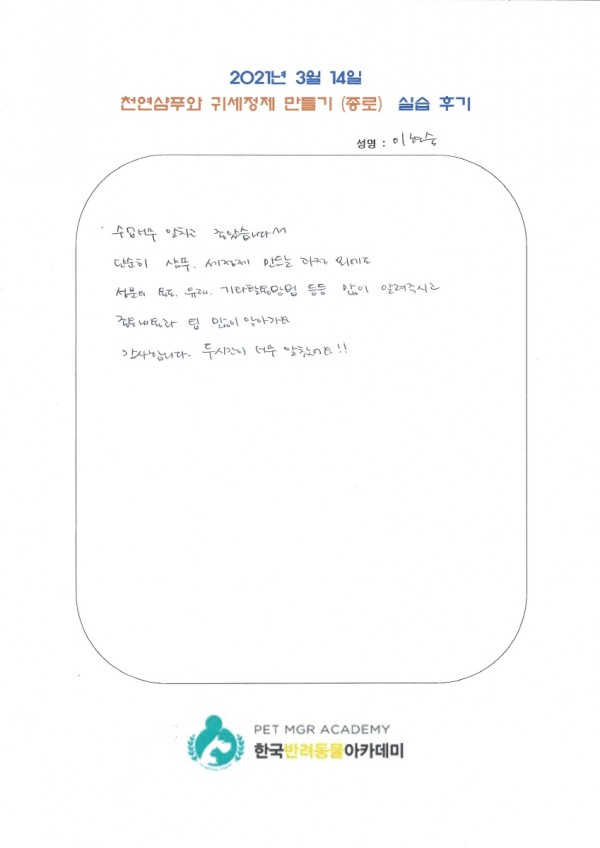 2021년 3월 14일
천연샴푸와 귀세정제 만들기 (종로) 실습 후기
성명 : 이현숙
수업너무 알차고 좋았습니다
단순히 샴푸, 세정제 만드는 과정 외에도
성분의 용도, 유래, 기타활용방법 등등 많이 알려주시고
좋은내용과 팁 많이 알아가요
감사합니다. 두시간이 너무 알찼어요!!
PET MGR ACADEMY
한국반려동물아카데미